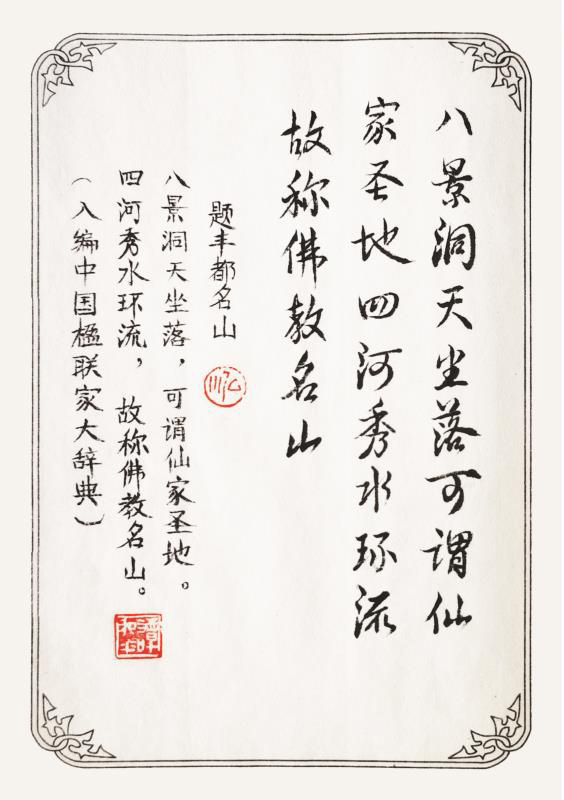 八景洞天坐落可谓仙
家圣地四河秀水环流
故称佛教名山
题丰都名山
八景洞天坐落，可谓仙家圣地。
四河秀水环流，故称佛教名山。
（入编中国楹联家大辞典）